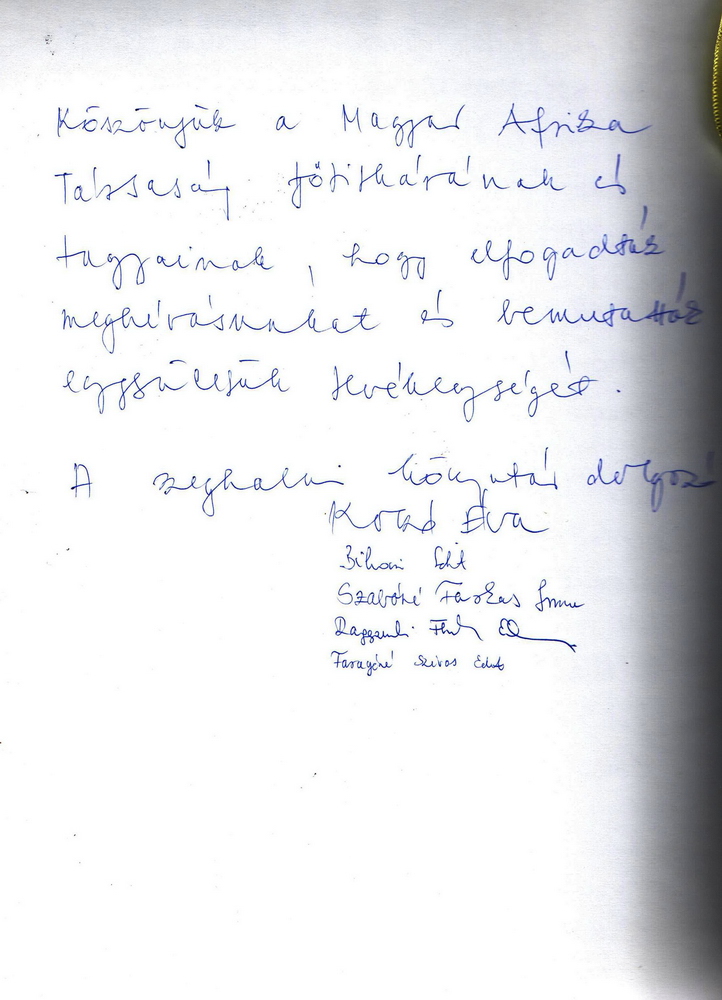 Köszönjük a Magyar Afrika
Társaság főtitkárának és
tagjainak, hogy elfogadták
meghívásunkat és bemutatták
egyesületük tevékenységét.
A szeghalmi könyvtár dolgozó
Kokó Éva
Bihari Edit
Szabóné Farkas Imma
Edit
Faragóné Szivos Edit